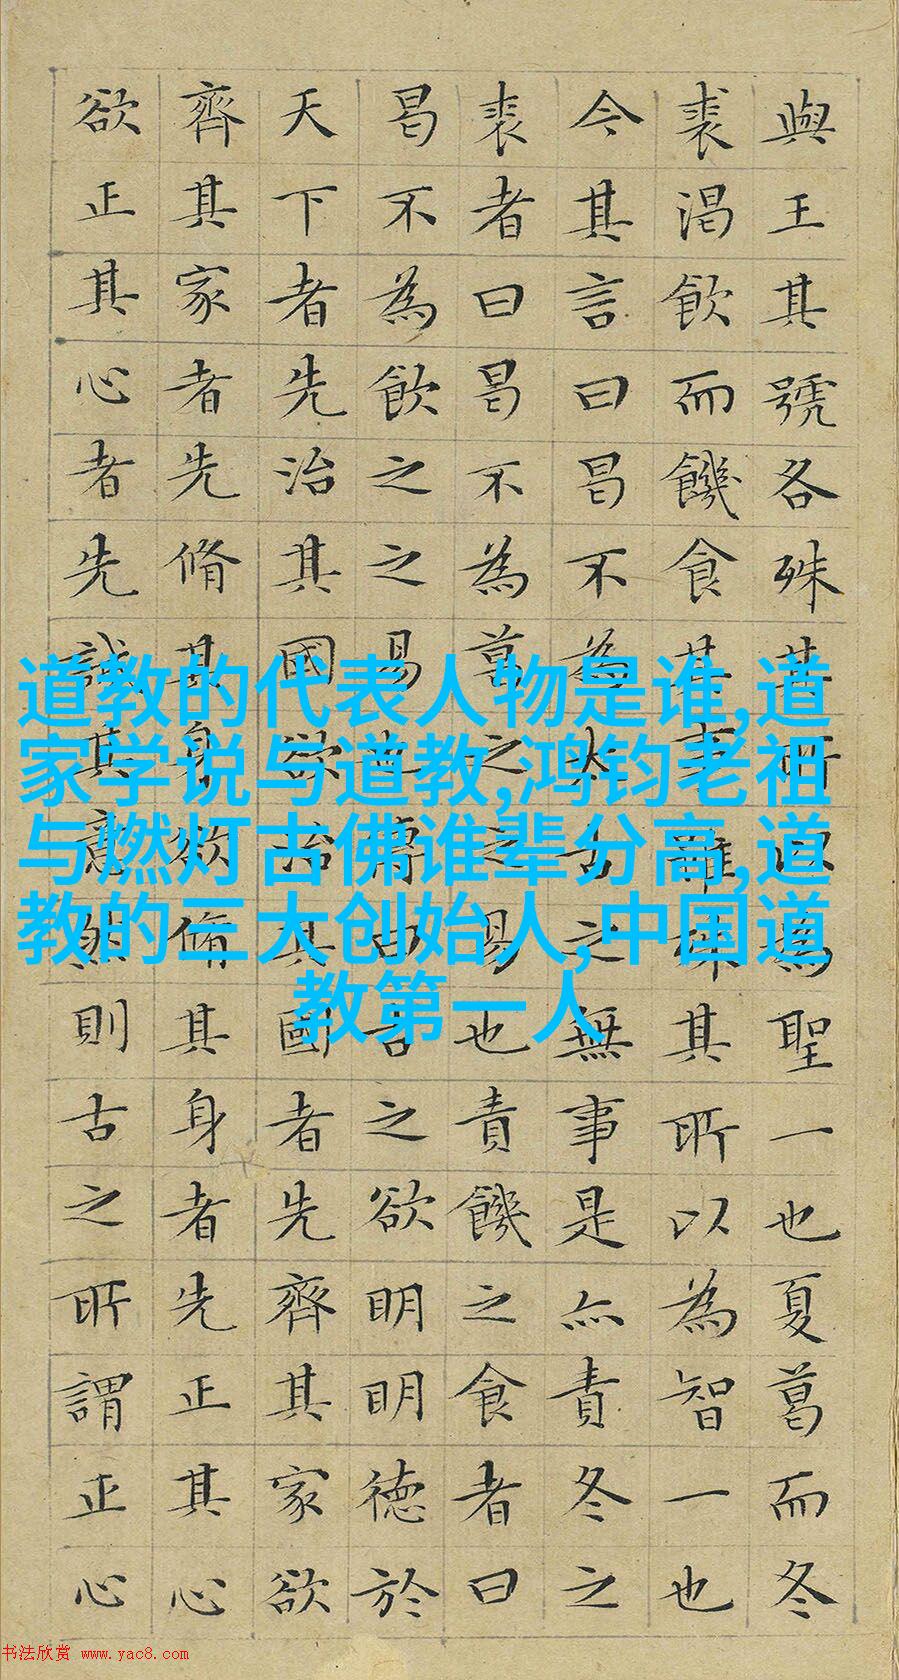 與王其號各殊其所以為聖一也夏葛而冬
裘渴飲而饑食其事雖殊其所以為智一也
今其言曰曷不為太古之無事是亦責冬之
裘者曰曷不為葛之之易也責饑之食者曰
曷不為飲之之易也傳曰古之欲明明德於
天下者先治其國欲治其國者先齊其家欲
齊其家者先脩其身欲脩其身者先正其心
欲正其心者先誠其意然則古之所謂正心
道教的代表人物是谁,道
家学说与道教,鸿钧老祖
与燃灯古佛谁辈分高,道
教的三大创始人,中国道
教第一人
书法欣赏 www.yac8.com